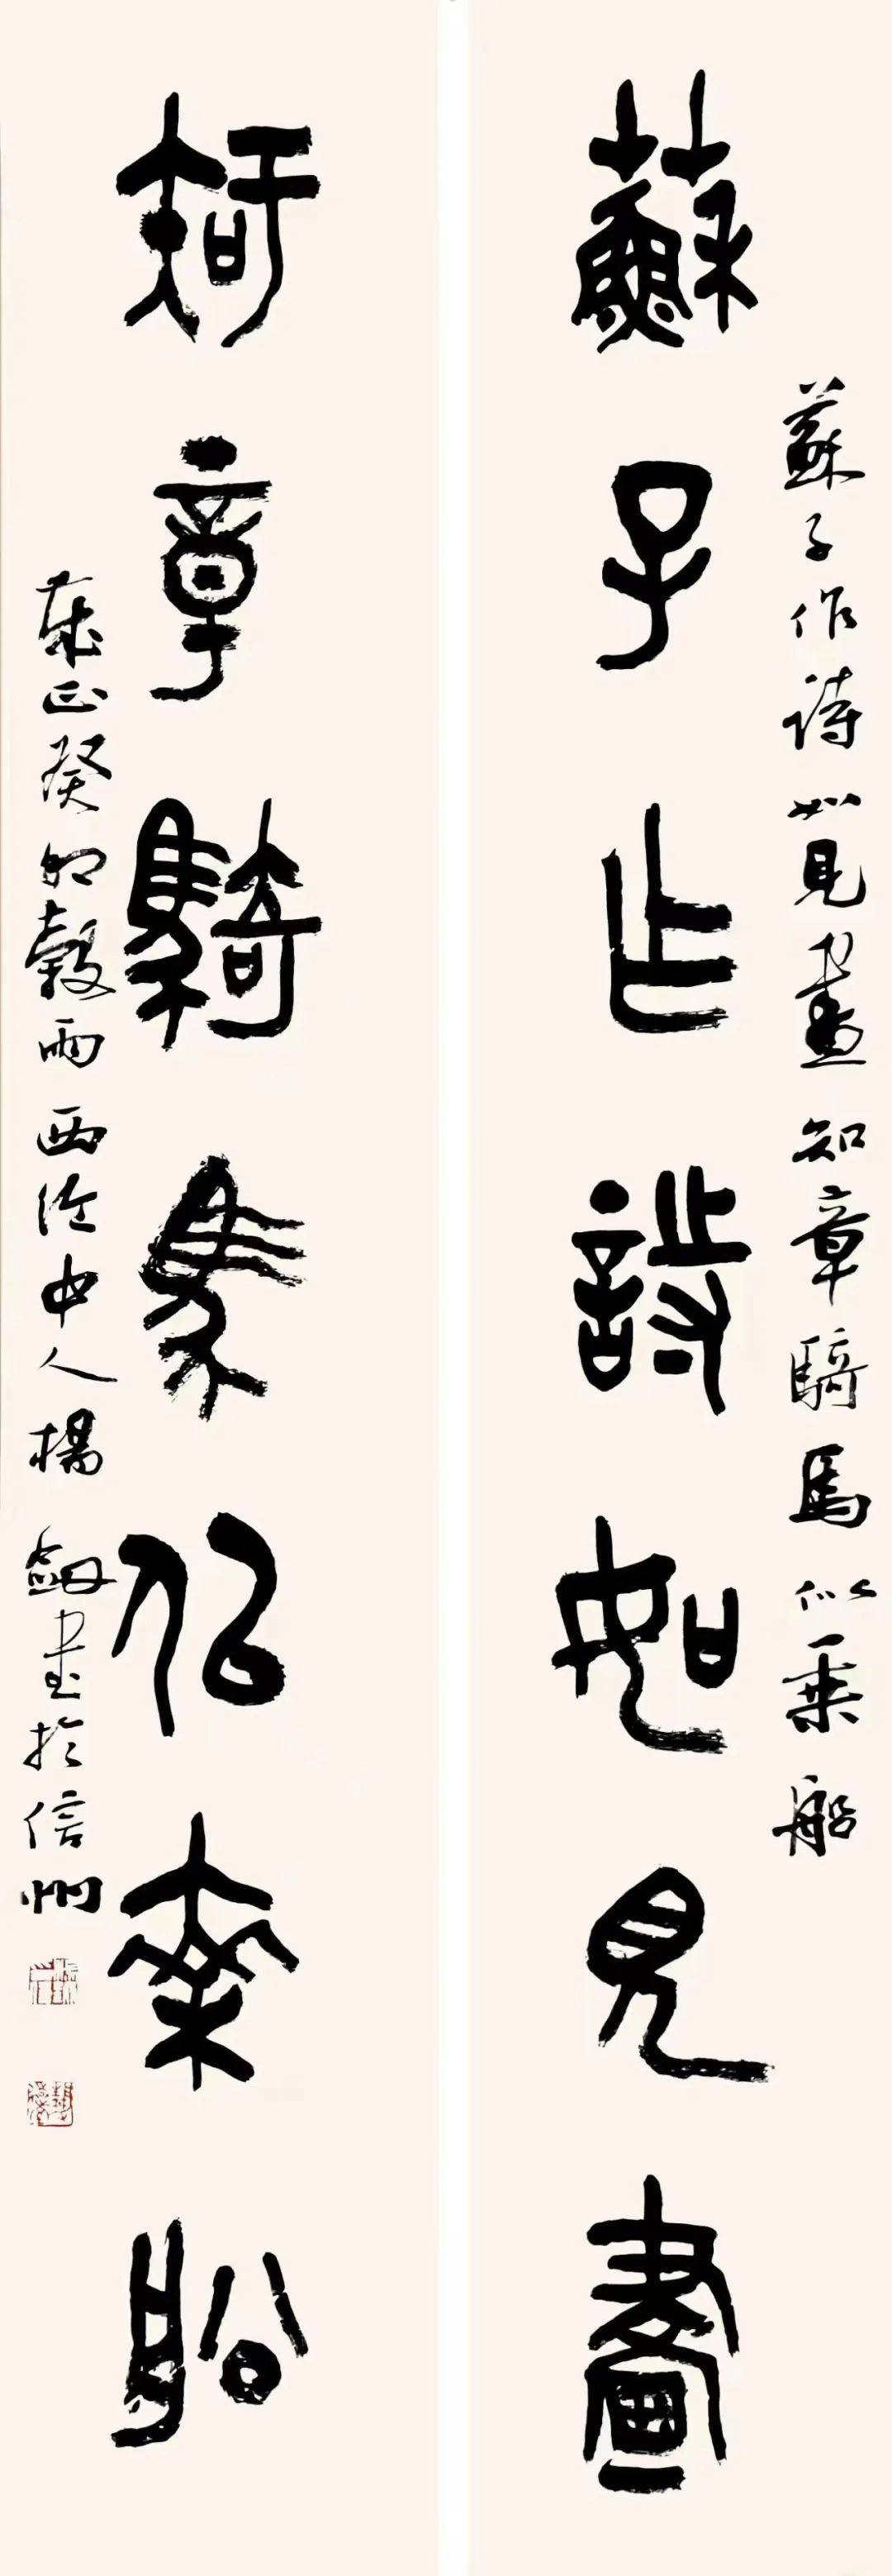 蘇子作詩如見畫
蘇子作詩如見畫 知章騎馬似乘船
知章騎馬似乘船
雅正 癸卯穀雨 西泠中人楊劍書於信州